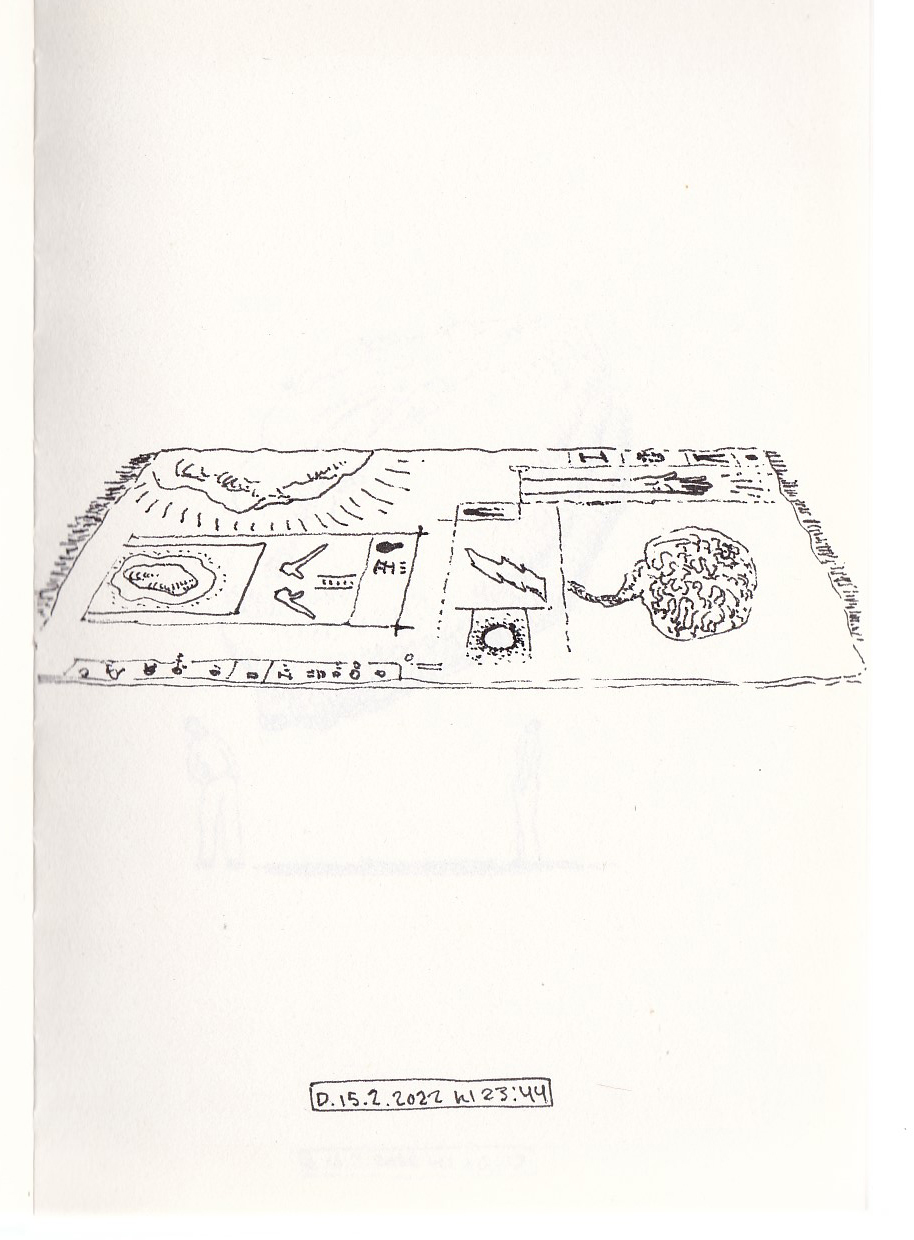 D.15.2.2022 kl 23:44